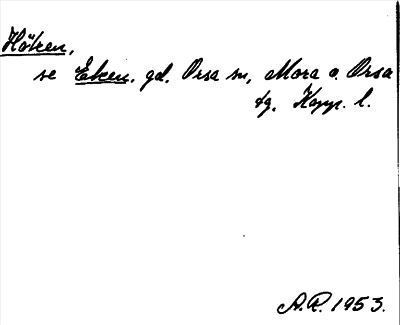 Höken,
se Eken, gd, Orsa sn, Mora o. Orsa
tg, Kopp. l.
A.R. 1953.